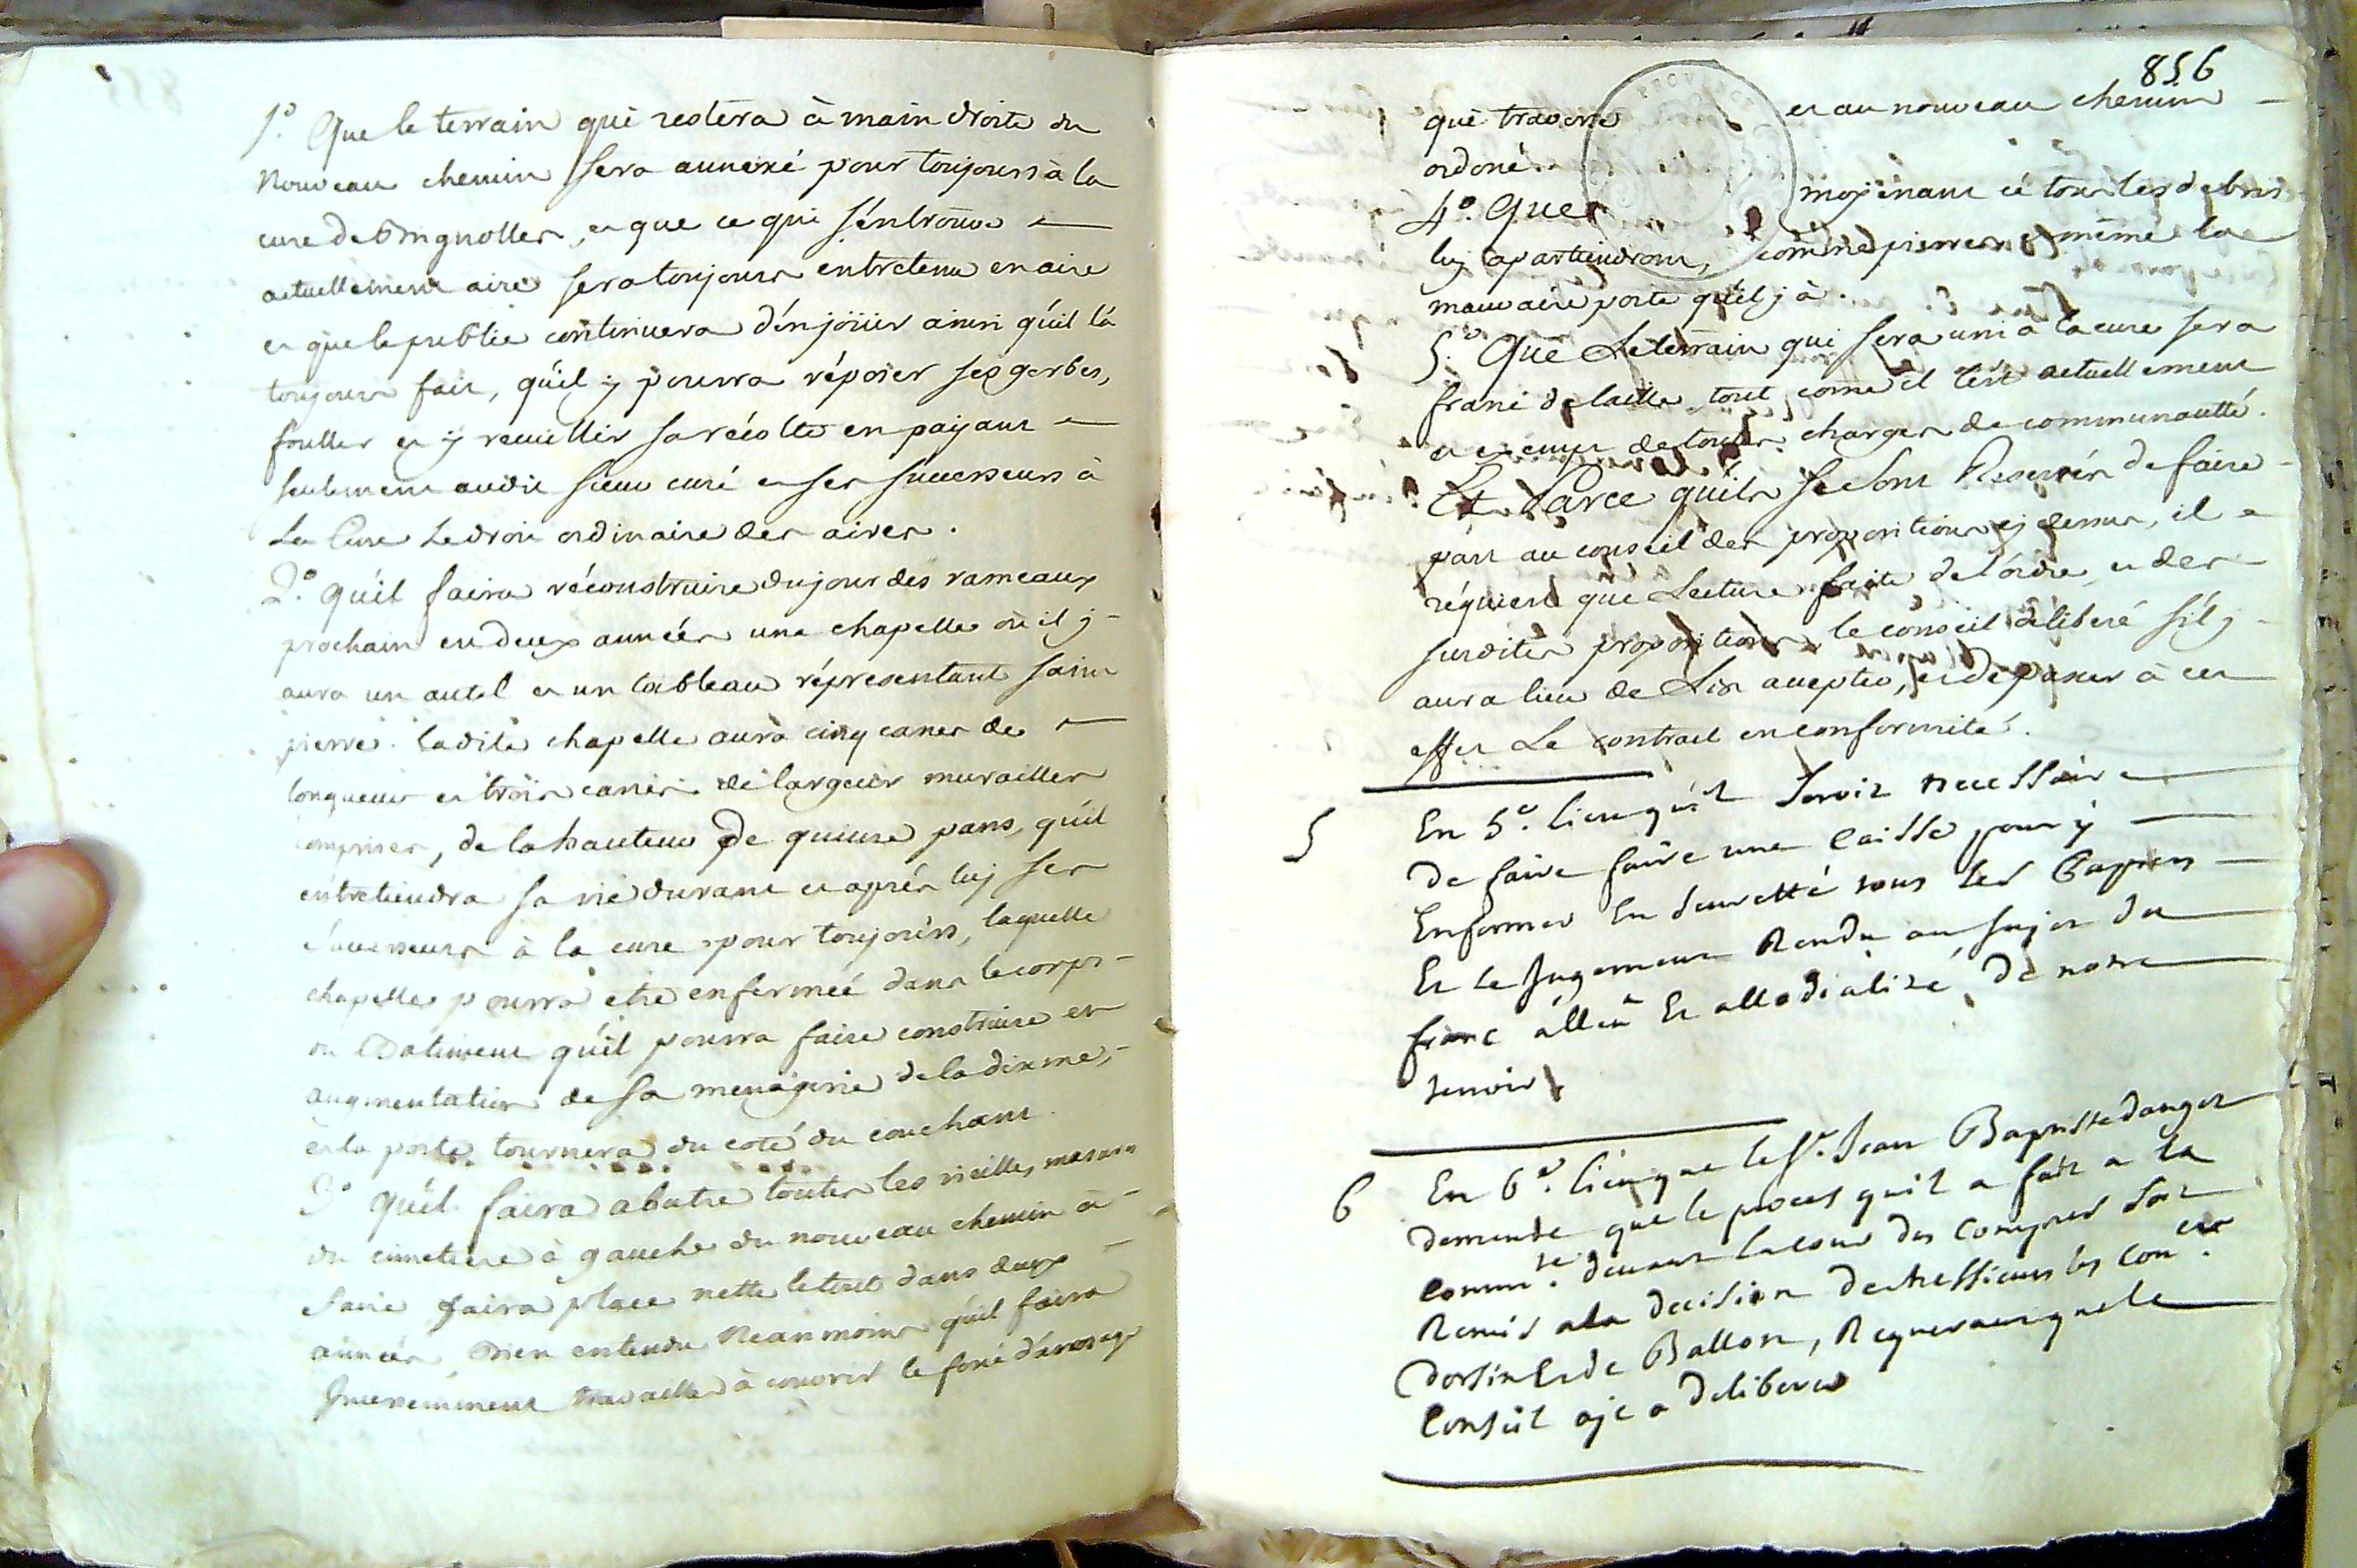 1º. Que le terrain qui restera à main droite du
Nouveau chemin sera annexé pour toujours à la
cure de Brignolles, et que ce qui s'éntrouve
actuellement aire sera toujours entretenu en aire
et que le public continuera d'énjoüir ainsi qu'il l'á
toujours fait, qu'il y pourra réposer ses gerbes,
fouller et y recüillir sa récolte en païant
seulement audit sieur curé et ses successeurs à
La Cure Le droit ordinaire des aires.
2º. qu'il faira réconstruire du jour des rameaux
prochain en deux années une chapelle où il y
aura un autel et un tableau réprésentant saint
pierre. ladite chapelle aura cinq canes de
longueur et trois canes de largeur murailles
comprises, de la hauteur de quinse pans, qu'il
entretiendra sa vie durant et aprés luy ses
successeurs à la cure pour toujours, laquelle
chapelle pourra etre enfermée dans le corps
du Batiment qu'il pourra faire construire en
augmentation de sa menagerie de la dixme,
et la porte tournera du coté du couchant.
3º qu'il faira abatre toutes les vieilles masures
du cimetiere à gauche du nouveau chemin à
faire faira place nette le tout dans deux
années, Bien entendu Neanmoins qu'il faira
Incessamment travailler à couvrir le fossé d'arrosage
856
qui traverse et au nouveau chemin
ordoné.
4º. Que moyenant cé tous les debris
luy apartiendront, comme pierres et même la
mauvaise porte qu'il y à.
5º. Que Le terrain qui sera uni à la cure sera
franc de taille tout come il l'ést actuellement
et exempt de toutes charges de communautté.
Et Parce qu'ils se sont Reservés de faire
part au conseil des propositions cy dessus, il a
réquiert que Lecture faite de l'órdre et des
susdites propositions le conseil délibere s'il y
aura lieu de Les accepter, et de passer à cet
effet Le contract en conformité.
5 En 5e. lieu qu'il seroit necessaire
de faire faire une Caisse pour y
Enfermer En seuretté tous les Papiers
Et le Jugement Rendu au sujet du
franc alleu Et allodialité de notre
terroir
6 En 6e. lieu que le Sr. Jean Baptiste dauget
demende que le proces quil a fait a la
Commté. devant la Cour des Comptes soit
Remis a la decision de Messieurs les Coners.
dorsin Et de Ballon, Requerant que le
Conseil aje a deliberer